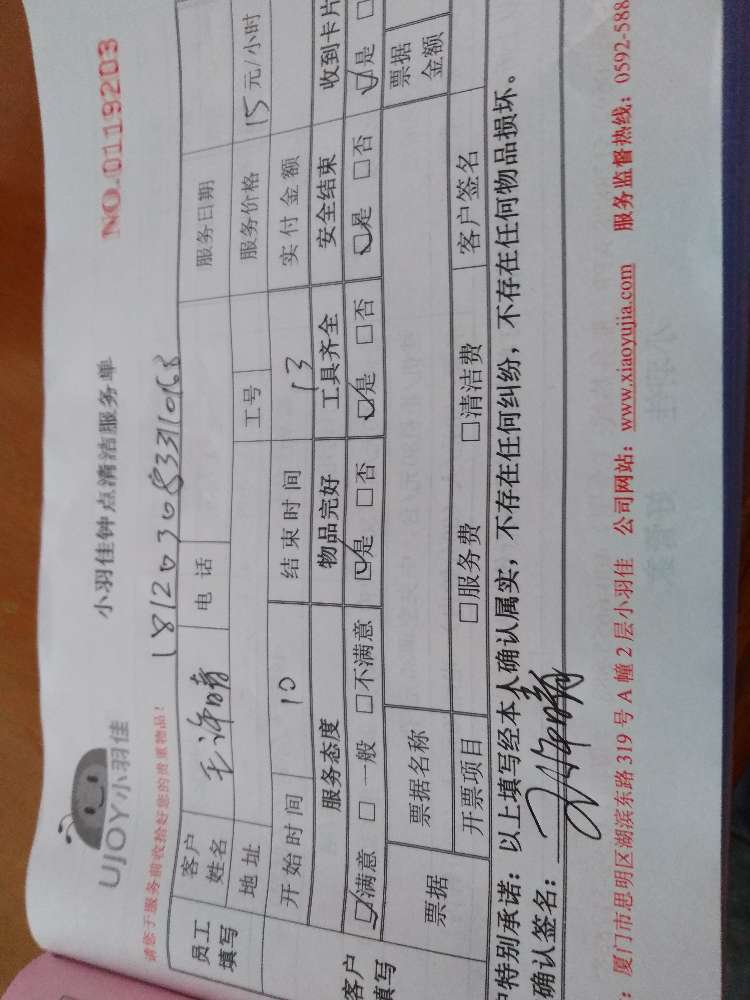 UJOY小羽佳
小羽佳钟点清洁服务单
NO.0119203
请您于服务前收拾好您的贵重物品！
18120368331068
员工填写 客户姓名 电话 服务日期
地址 工号 服务价格 15元/小时
开始时间 10 结束时间 13 实付金额
客户填写 服务态度 物品完好 工具齐全 安全结束 收到卡片
☑满意 □一般 □不满意 ☑是 □否 ☑是 □否 ☑是 □否 ☑是 □
票据 票据名称 票据金额
开票项目 □服务费 □清洁费 客户签名
特别承诺：以上填写经本人确认属实，不存在任何纠纷，不存在任何物品损坏。
确认签名：
：厦门市思明区湖滨东路319号A幢2层小羽佳 公司网站：www.xiaoyujia.com 服务监督热线：0592-588